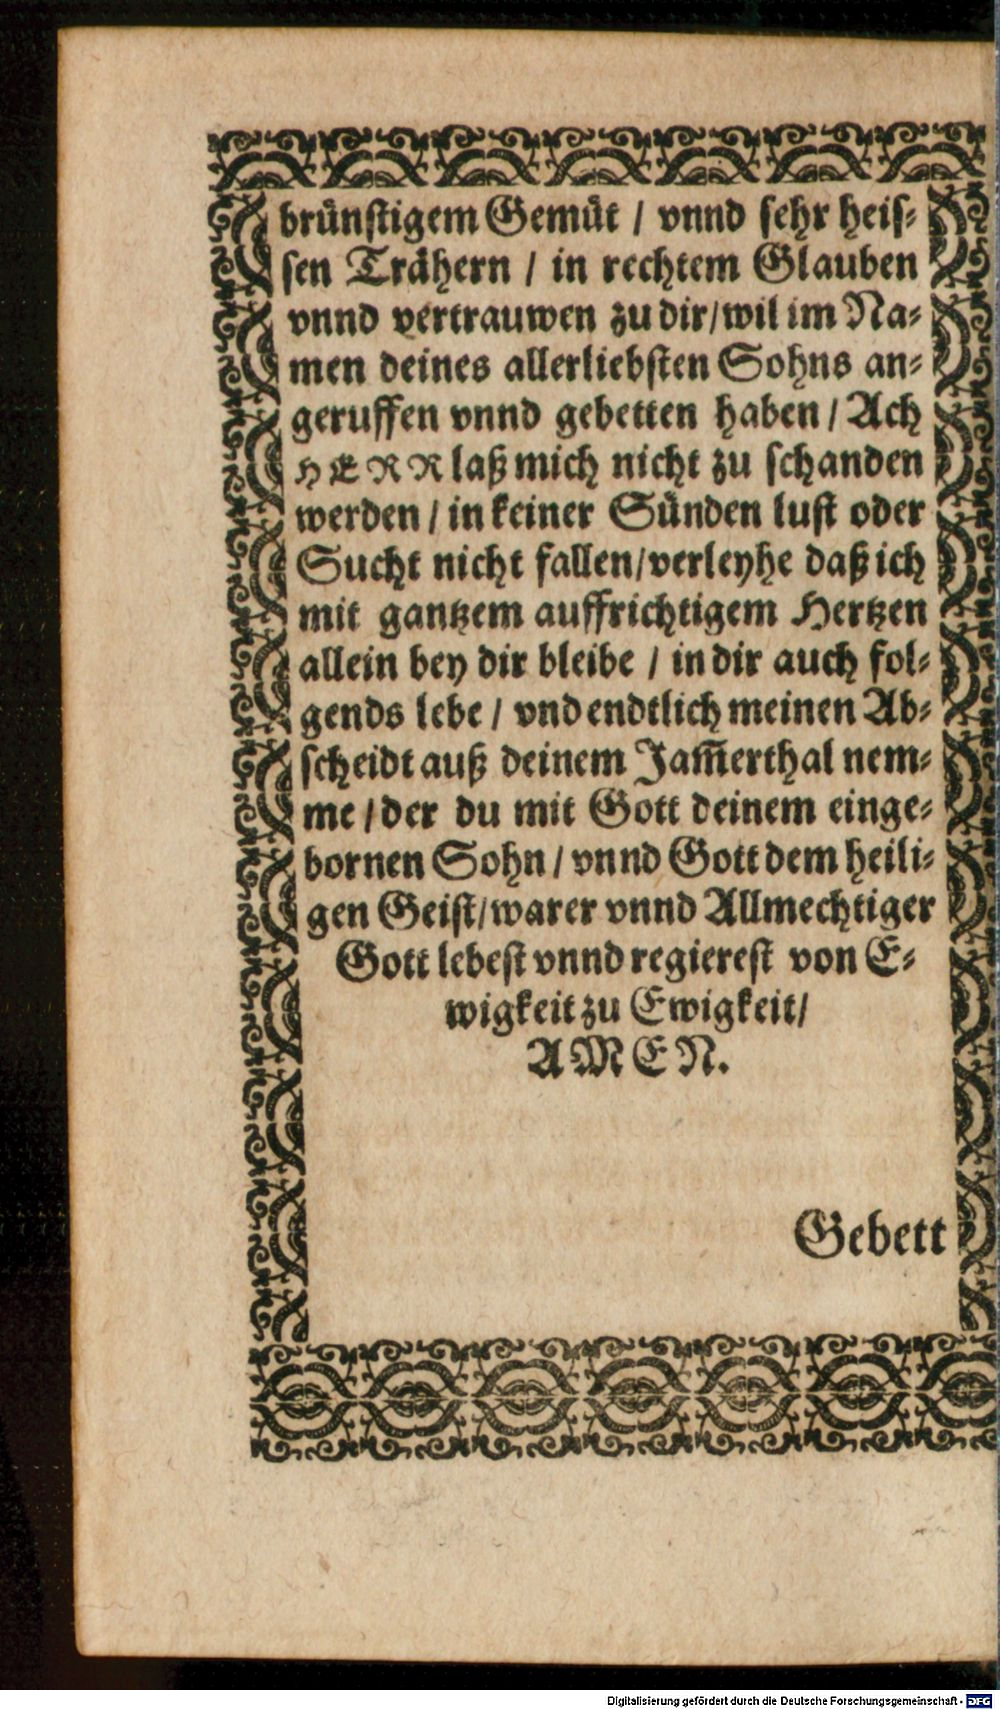 brünstigem Gemüt / vnnd sehr heis-
sen Trähern / in rechtem Glauben
vnnd vertrauwen zu dir/wil im Na-
men deines allerliebsten Sohns an-
geruffen vnnd gebetten haben / Ach
HERR laß mich nicht zu schanden
werden / in keiner Sünden lust oder
Sucht nicht fallen/verleyhe daß ich
mit gantzem auffrichtigem Hertzen
allein bey dir bleibe / in dir auch fol-
gends lebe / vnd endtlich meinen Ab-
scheidt auß deinem Jam̃erthal nem-
me / der du mit Gott deinem einge-
bornen Sohn / vnnd Gott dem heili-
gen Geist/warer vnnd Allmechtiger
Gott lebest vnnd regierest von E-
wigkeit zu Ewigkeit/
AMEN.
Gebett
Digitalisierung gefördert durch die Deutsche Forschungsgemeinschaft - DFG